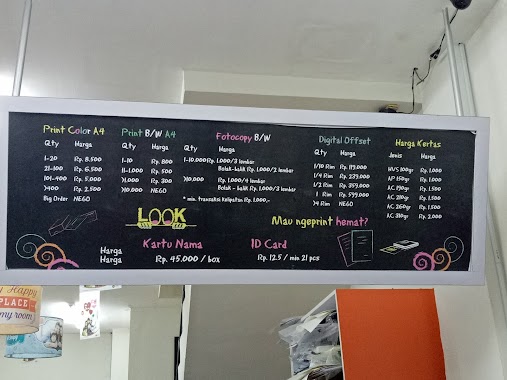 Print Color A4
Qty Harga
1-20 Rp. 8.500
21-100 Rp. 6.500
101-400 Rp. 5.000
>400 Rp. 2.500
Big Order NEGO
Print B/W A4
Qty Harga
1-10 Rp. 800
11-1.000 Rp. 500
>1.000 Rp. 300
>10.000 NEGO
Fotocopy B/W
Qty Harga
1-10.000 Rp. 1.000/3 lembar
Bolak-balik Rp. 1.000/2 lembar
>10.000 Rp. 1.000/4 lembar
Bolak - balik Rp. 1.000/3 lembar
* min. transaksi kelipatan Rp. 1.000,-
Digital Offset
Qty Harga
1/10 Rim Rp. 119.000
1/4 Rim Rp. 239.000
1/2 Rim Rp. 359.000
1 Rim Rp. 599.000
>4 Rim NEGO
Harga Kertas
Jenis Harga
HVS 100gr Rp. 1.000
AP 150gr Rp. 1.000
AC 190gr Rp.
AC 210gr Rp.
AC 260gr Rp.
AC 310gr Rp. 2.000
LOOK
Mau ngeprint hemat?
Kartu Nama
Harga Rp. 45.000 / box
Harga
ID Card
Rp. 12.5 / min 21 pcs
Happy
PLACE
my room